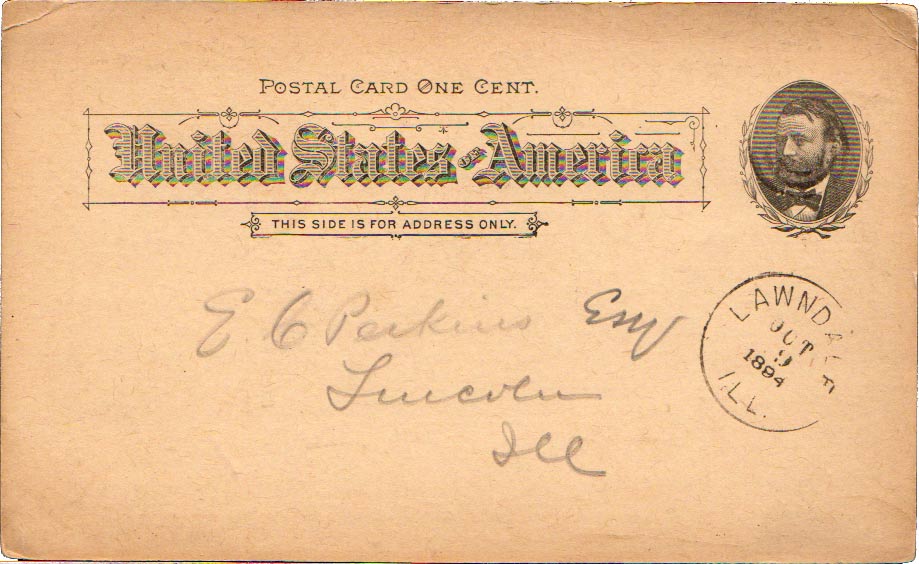 POSTAL CARD ONE CENT.
United States OF America
THIS SIDE IS FOR ADDRESS ONLY.
E C Perkins Esq
Lincoln
Ill
LAWNDALE
OCT
9
1894
ILL.